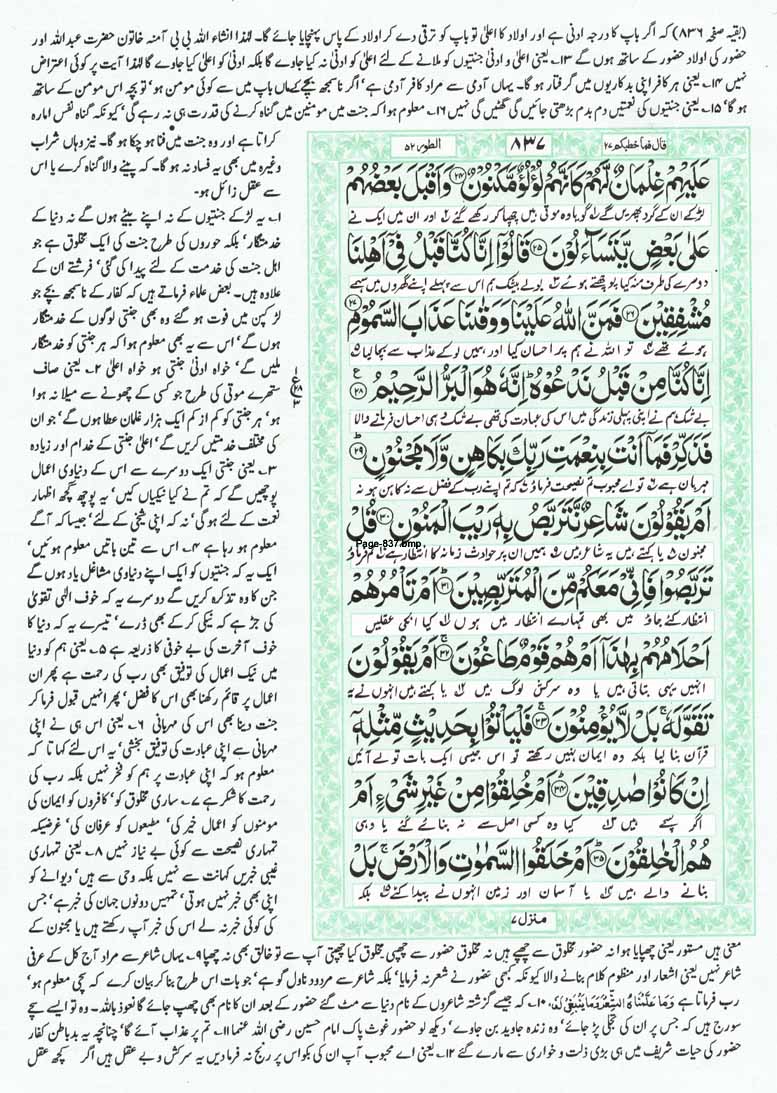 (بقیہ صفحہ ۸۳۶) کہ اگر باپ کا درجہ ادنیٰ ہے اور اولاد کا اعلیٰ تو باپ کو ترقی دے کر اولاد کے پاس پہنچایا جائے گا۔ لہٰذا انشاء اللہ بی بی آمنہ خاتون حضرت عبداللہ اور
حضور کی اولاد حضور کے ساتھ ہوں گے ۱۳۔ یعنی اعلیٰ و ادنیٰ جنتیوں کو ملانے کے لئے اعلیٰ کو ادنیٰ نہ کیا جاوے گا بلکہ ادنیٰ کو اعلیٰ کیا جاوے گا لہٰذا آیت پر کوئی اعتراض
نہیں ۱۴۔ یعنی ہر کافر اپنی بدکاریوں میں گرفتار ہو گا۔ یہاں آدمی سے مراد کافر آدمی ہے' اگر ناسمجھ بچے کے ماں باپ میں سے کوئی مومن ہو' تو بچہ اس مومن کے ساتھ
ہو گا' ۱۵۔ یعنی جنتیوں کی نعمتیں دم بدم بڑھتی جائیں گی گھٹیں گی نہیں ۱۶۔ معلوم ہوا کہ جنت میں مومنین میں گناہ کرنے کی قدرت ہی نہ رہے گی' کیونکہ گناہ نفس امارہ
کراتا ہے اور وہ جنت میں فنا ہو چکا ہو گا۔ نیز وہاں شراب
وغیرہ میں بھی یہ فساد نہ ہو گا۔ کہ پینے والا گناہ کرے یا اس
سے عقل زائل ہو۔
۱۔ یہ لڑکے جنتیوں کے نہ اپنے بیٹے ہوں گے نہ دنیا کے
خدمتگار' بلکہ حوروں کی طرح جنت کی ایک مخلوق ہے جو
اہل جنت کی خدمت کے لئے پیدا کی گئی' فرشتے ان کے
علاوہ ہیں۔ بعض علماء فرماتے ہیں کہ کفار کے ناسمجھ بچے جو
لڑکپن میں فوت ہو گئے وہ بھی جنتی لوگوں کے خدمتگار
ہوں گے' اس سے یہ بھی معلوم ہوا کہ ہر جنتی کو خدمتگار
ملیں گے' خواہ ادنیٰ جنتی ہو خواہ اعلیٰ ۲۔ یعنی صاف
ستھرے موتی کی طرح جو کسی کے چھونے سے میلا نہ ہوا
ہو' ہر جنتی کو کم از کم ایک ہزار غلمان عطا ہوں گے' جو ان
کی مختلف خدمتیں کریں گے' اعلیٰ جنتی کے خدام اور زیادہ
۳۔ یعنی جنتی ایک دوسرے سے اس کے دنیاوی اعمال
پوچھیں گے کہ تم نے کیا نیکیاں کیں' یہ پوچھ گچھ اظہار
نعمت کے لئے ہو گی' نہ کہ اپنی شیخی کے لئے' جیسا کہ آگے
معلوم ہو رہا ہے ۴۔ اس سے تین باتیں معلوم ہوئیں'
ایک یہ کہ جنتیوں کو ایک اپنے دنیاوی مشاغل یاد ہوں گے
جن کا وہ تذکرہ کریں گے دوسرے یہ کہ خوف الٰہی تقویٰ
کی جڑ ہے کہ نیکی کر کے بھی ڈرے' تیسرے یہ کہ دنیا کا
خوف آخرت کی بے خوفی کا ذریعہ ہے ۵۔ یعنی ہم کو دنیا
میں نیک اعمال کی توفیق بھی رب کی رحمت ہے پھر ان
اعمال پر قائم رکھنا بھی اس کا فضل' پھر انہیں قبول فرما کر
جنت دینا بھی اس کی مہربانی ۶۔ یعنی اس ہی نے اپنی
مہربانی سے اپنی عبادت کی توفیق بخشی' یہ اس لئے کہا تا کہ
معلوم ہو کہ اپنی عبادت پر ہم کو فخر نہیں بلکہ رب کی
رحمت کا شکر ہے ۷۔ ساری مخلوق کو' کافروں کو ایمان کی
مومنوں کو اعمال خیر کی' مطیعوں کو عرفان کی' غرضیکہ
تمہاری نصیحت سے کوئی بے نیاز نہیں ۸۔ یعنی تمہاری
غیبی خبریں کہانت سے نہیں بلکہ وحی سے ہیں' دیوانے کو
اپنی بھی خبر نہیں ہوتی' تمہیں دونوں جہان کی خبر ہے' جس
کی کوئی خبر نہ لے اس کی خبر آپ رکھتے ہیں یا مجنون کے
قال فما خطبکم ۲۷
۸۳۷
الطور ۵۲
عَلَيْهِمْ غِلْمَانٌ لَّهُمْ كَاَنَّهُمْ لُؤْلُؤٌ مَّكْنُوْنٌ ۲۴ وَاَقْبَلَ بَعْضُهُمْ
لڑکے ان کے گرد پھریں گے گویا وہ موتی ہیں چھپا کر رکھے گئے اور ان میں ایک نے
عَلٰى بَعْضٍ يَّتَسَآءَلُوْنَ ۲۵ قَالُوْٓا اِنَّا كُنَّا قَبْلُ فِيْٓ اَهْلِنَا
دوسرے کی طرف منہ کیا پوچھتے ہوئے بولے بیشک ہم اس سے پہلے اپنے گھروں میں سہمے
مُشْفِقِيْنَ ۲۶ فَمَنَّ اللّٰهُ عَلَيْنَا وَوَقٰىنَا عَذَابَ السَّمُوْمِ ۲۷
ہوئے تھے تو اللہ نے ہم پر احسان کیا اور ہمیں لو کے عذاب سے بچا لیا
اِنَّا كُنَّا مِنْ قَبْلُ نَدْعُوْهُ ؕ اِنَّهٗ هُوَ الْبَرُّ الرَّحِيْمُ ۲۸
بے شک ہم نے اپنی پہلی زندگی میں اس کی عبادت کی تھی بے شک وہی احسان فرمانے والا
فَذَكِّرْ فَمَآ اَنْتَ بِنِعْمَتِ رَبِّكَ بِكَاهِنٍ وَّلَا مَجْنُوْنٍ ۲۹
مہربان ہے تو اے محبوب تم نصیحت فرماؤ کہ تم اپنے رب کے فضل سے نہ کاہن ہو نہ
اَمْ يَقُوْلُوْنَ شَاعِرٌ نَّتَرَبَّصُ بِهٖ رَيْبَ الْمَنُوْنِ ۳۰ قُلْ
مجنون یا کہتے ہیں یہ شاعر ہیں ہمیں ان پر حوادث زمانہ کا انتظار ہے تم فرماؤ
Page-837.bmp
تَرَبَّصُوْا فَاِنِّيْ مَعَكُمْ مِّنَ الْمُتَرَبِّصِيْنَ ۳۱ اَمْ تَاْمُرُهُمْ
انتظار کئے جاؤ میں بھی تمہارے انتظار میں ہوں کیا انکی عقلیں
اَحْلَامُهُمْ بِهٰذَآ اَمْ هُمْ قَوْمٌ طَاغُوْنَ ۳۲ اَمْ يَقُوْلُوْنَ
انہیں یہی بتاتی ہیں یا وہ سرکش لوگ ہیں یا کہتے ہیں انہوں نے یہ
تَقَوَّلَهٗ ۚ بَلْ لَّا يُؤْمِنُوْنَ ۳۳ فَلْيَاْتُوْا بِحَدِيْثٍ مِّثْلِهٖٓ
قرآن بنا لیا بلکہ وہ ایمان نہیں رکھتے تو اس جیسی ایک بات تو لے آئیں
اِنْ كَانُوْا صٰدِقِيْنَ ۳۴ اَمْ خُلِقُوْا مِنْ غَيْرِ شَيْءٍ اَمْ
اگر سچے ہیں کیا وہ کسی اصل سے نہ بنائے گئے یا وہی
هُمُ الْخٰلِقُوْنَ ۳۵ اَمْ خَلَقُوا السَّمٰوٰتِ وَالْاَرْضَ ۚ بَلْ
بنانے والے ہیں یا آسمان اور زمین انہوں نے پیدا کئے بلکہ
منزل ۷
معنی ہیں مستور یعنی چھپایا ہوا نہ حضور مخلوق سے چھپے ہیں نہ مخلوق حضور سے چھپی مخلوق کیا چھپتی آپ سے تو خالق بھی نہ چھپا ۹۔ یہاں شاعر سے مراد آج کل کے عرفی
شاعر نہیں یعنی اشعار اور منظوم کلام بنانے والا کیونکہ کبھی حضور نے شعر نہ فرمایا' بلکہ شاعر سے مردود ناول گو ہے' جو بات اس طرح بنا کر بیان کرے کہ سچی معلوم ہو'
رب فرماتا ہے وَمَا عَلَّمْنٰهُ الشِّعْرَ وَمَا يَنْۢبَغِيْ لَهٗ ۱۰۔ کہ جیسے گزشتہ شاعروں کے نام دنیا سے مٹ گئے حضور کے بعد ان کا نام بھی چھپ جائے گا نعوذ باللہ۔ وہ تو ایسے سچے
سورج ہیں کہ جس پر ان کی تجلی پڑ جائے' وہ زندہ جاوید بن جاوے' دیکھ لو حضور غوث پاک امام حسین رضی اللہ عنہما ۱۱۔ تم پر عذاب آئے گا' چنانچہ یہ بدباطن کفار
حضور کی حیات شریف میں ہی بڑی ذلت و خواری سے مارے گئے ۱۲۔ یعنی اے محبوب آپ ان کی بکواس پر رنج نہ فرما دیں یہ سرکش و بے عقل ہیں اگر کچھ عقل